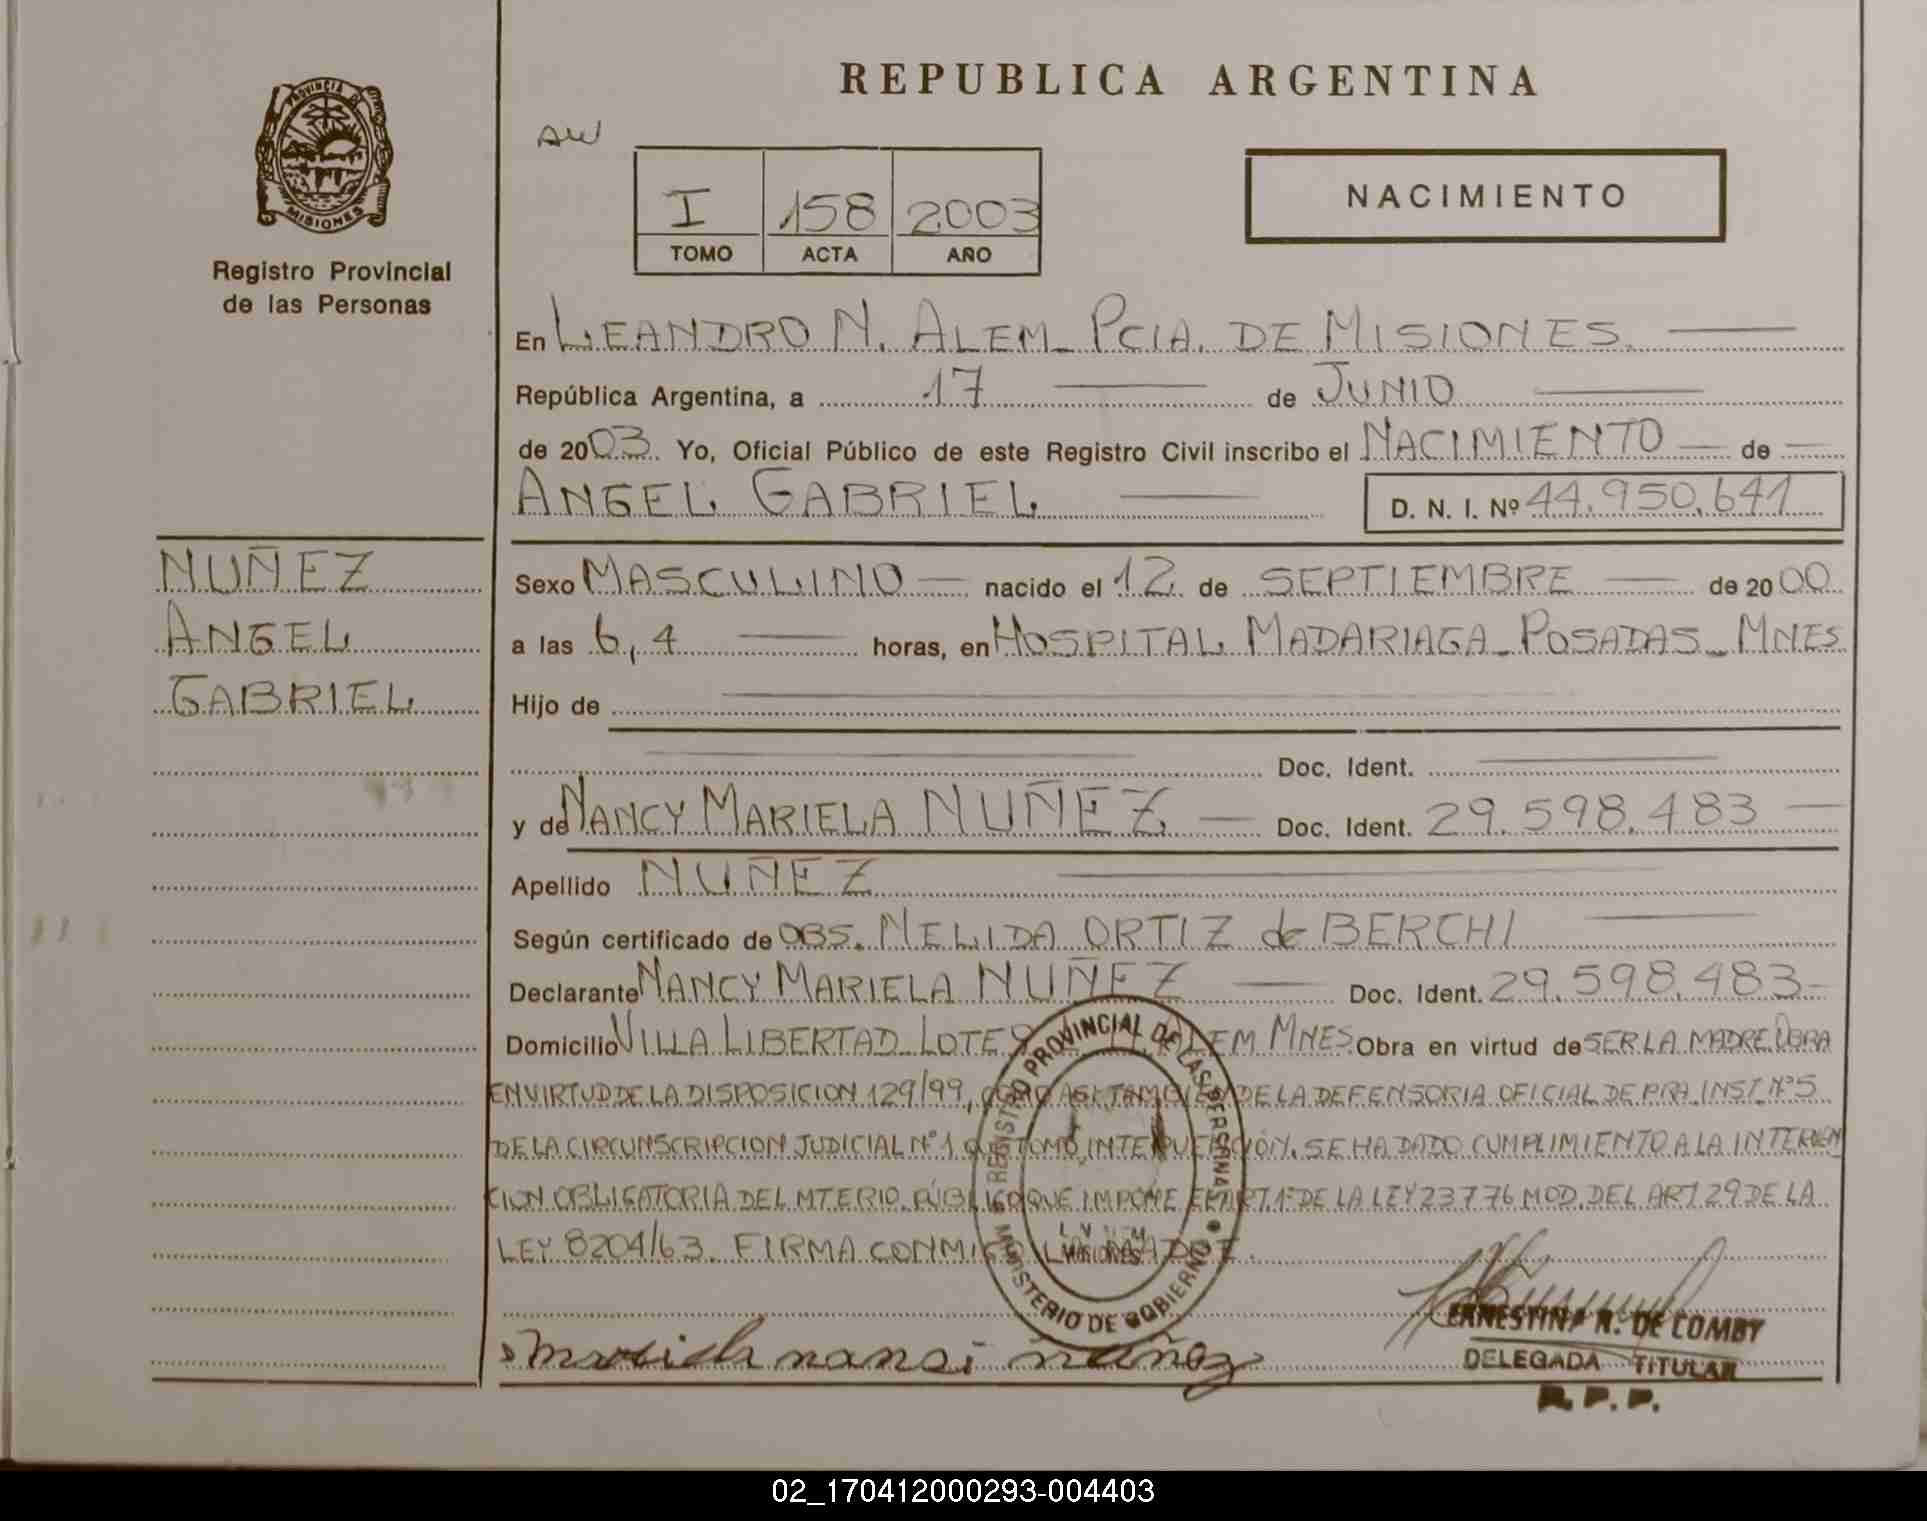 REPUBLICA ARGENTINA
AW
PROVINCIA DE
MISIONES
Registro Provincial
de las Personas
I 158 2003
TOMO ACTA AÑO
NACIMIENTO
En LEANDRO N. ALEM_ PCIA. DE MISIONES.
República Argentina, a 17 de JUNIO
de 2003. Yo, Oficial Público de este Registro Civil inscribo el NACIMIENTO de
ANGEL GABRIEL
D. N. I. Nº 44.950.641
NUÑEZ
ANGEL
GABRIEL
Sexo MASCULINO nacido el 12 de SEPTIEMBRE de 2000
a las 6,4 horas, en HOSPITAL MADARIAGA_ POSADAS_ MNES
Hijo de
Doc. Ident.
y de NANCY MARIELA NUÑEZ Doc. Ident. 29.598.483
Apellido NUÑEZ
Según certificado de OBS. NELIDA ORTIZ de BERCHI
Declarante NANCY MARIELA NUÑEZ Doc. Ident. 29.598.483
Domicilio VILLA LIBERTAD LOTE ALEM MNES. Obra en virtud de SER LA MADRE. OBRA
EN VIRTUD DE LA DISPOSICION 129/99, COMO ASI TAMBIEN DE LA DEFENSORIA OFICIAL DE PRA. INST. Nº 5
DE LA CIRCUNSCRIPCION JUDICIAL Nº 1 QUE TOMO INTERVENCIÓN. SE HA DADO CUMPLIMIENTO A LA INTERVEN
CION OBLIGATORIA DEL MTERIO. PÚBLICO QUE IMPONE EL ART. 1º DE LA LEY 23776 MOD. DEL ART. 29 DE LA
LEY 8204/63. FIRMA CONMIGO LA MADRE.
REGISTRO PROVINCIAL DE LAS PERSONAS
MINISTERIO DE GOBIERNO
MISIONES
mariela nansi nuñez
ERNESTINA R. DE COMBY
DELEGADA TITULAR
R. P. P.
02_170412000293-004403